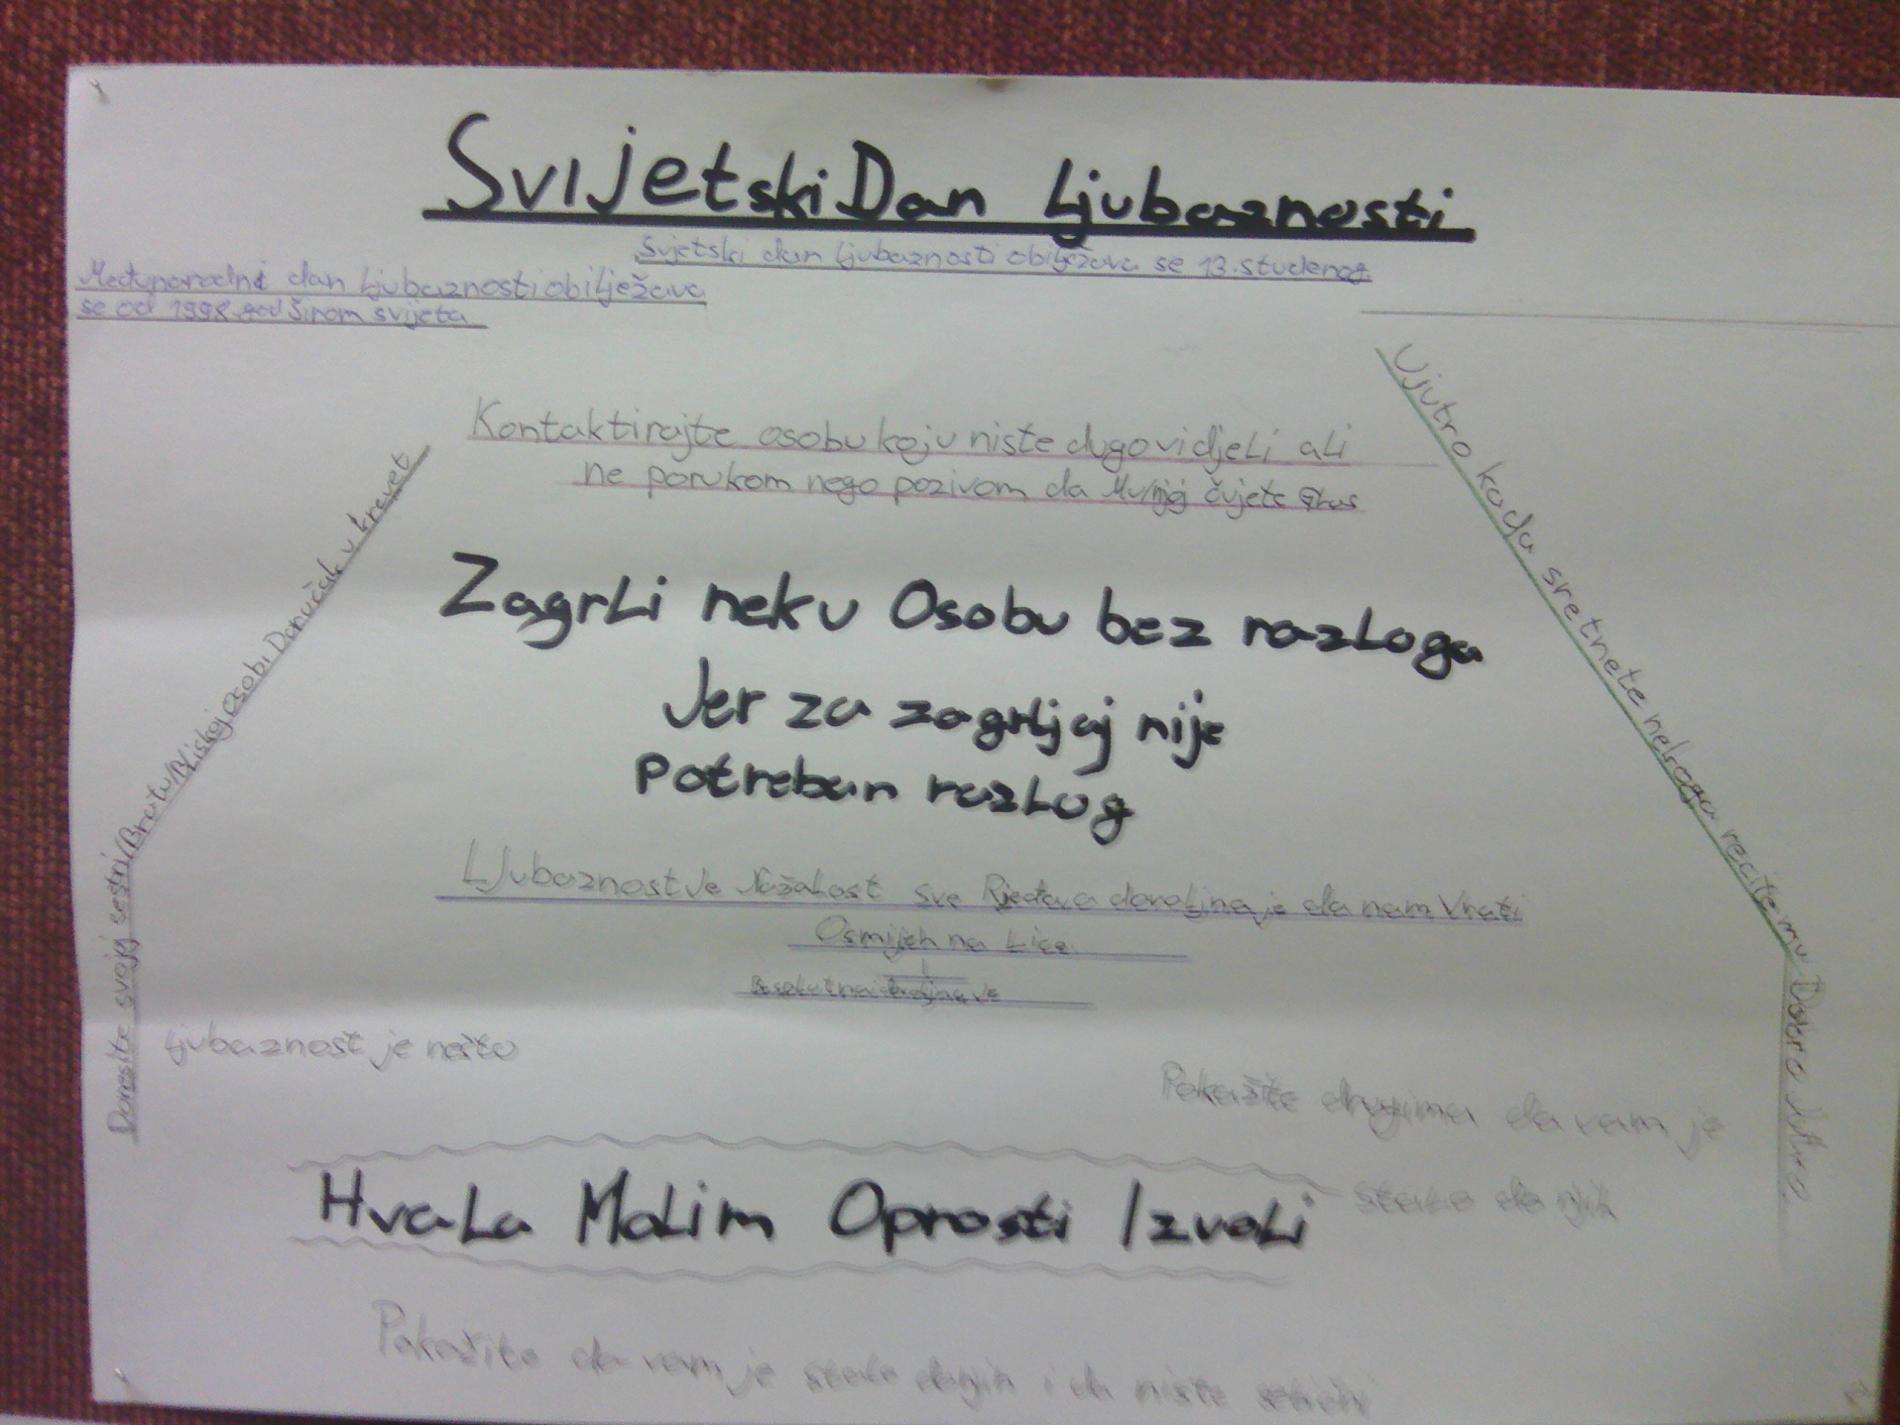 Svijetski Dan Ljubaznosti
Svjetski dan ljubaznosti obilježava se 13. studenog
Međunarodni dan ljubaznosti obilježava
se od 1998 god širom svijeta
Kontaktirajte osobu koju niste dugo vidjeli ali
ne porukom nego pozivom da Mu/njoj čujete glas
Donesite svojoj sestri/Bratu/Bliskoj osobi Doručak u krevet
Ujutro kada sretnete nekoga recite mu Dobro Jutro
Zagrli neku Osobu bez razloga
Jer za zagrljaj nije
Potreban razlog
Ljubaznost Je Nažalost sve Rjeđa vrlina je da nam Vrati
Osmijeh na Lice
ljubaznost je nešto
Pokažite drugima da vam je
stalo do njih
Hvala Molim Oprosti Izvoli
Pokažite da vam je stalo do njih i da niste sebični